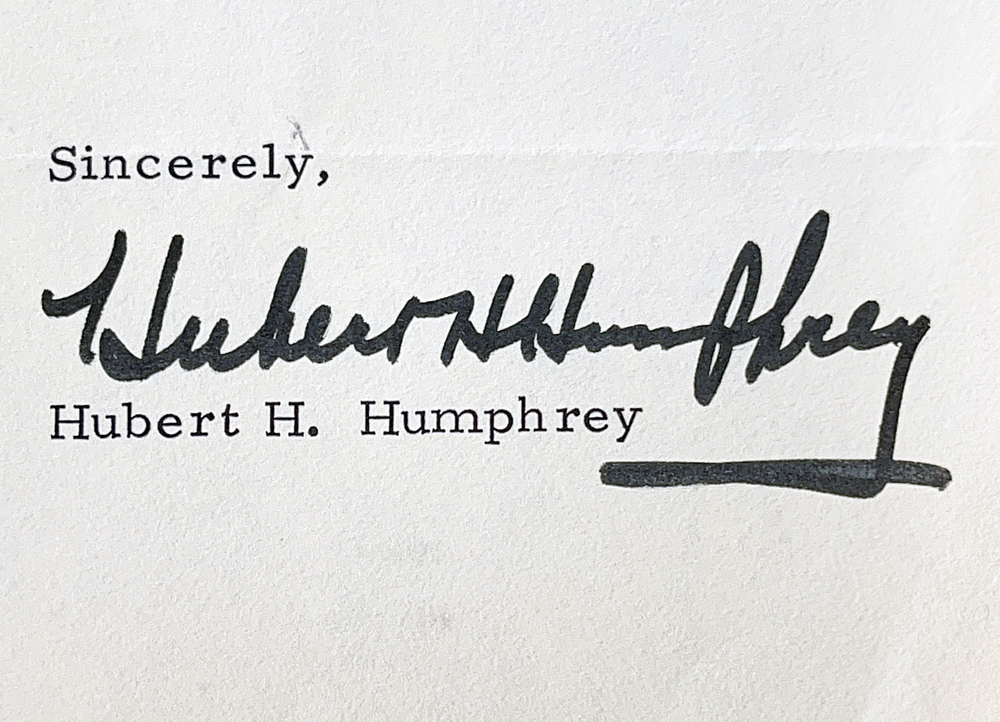 Sincerely,
Hubert H Humphrey
Hubert H. Humphrey